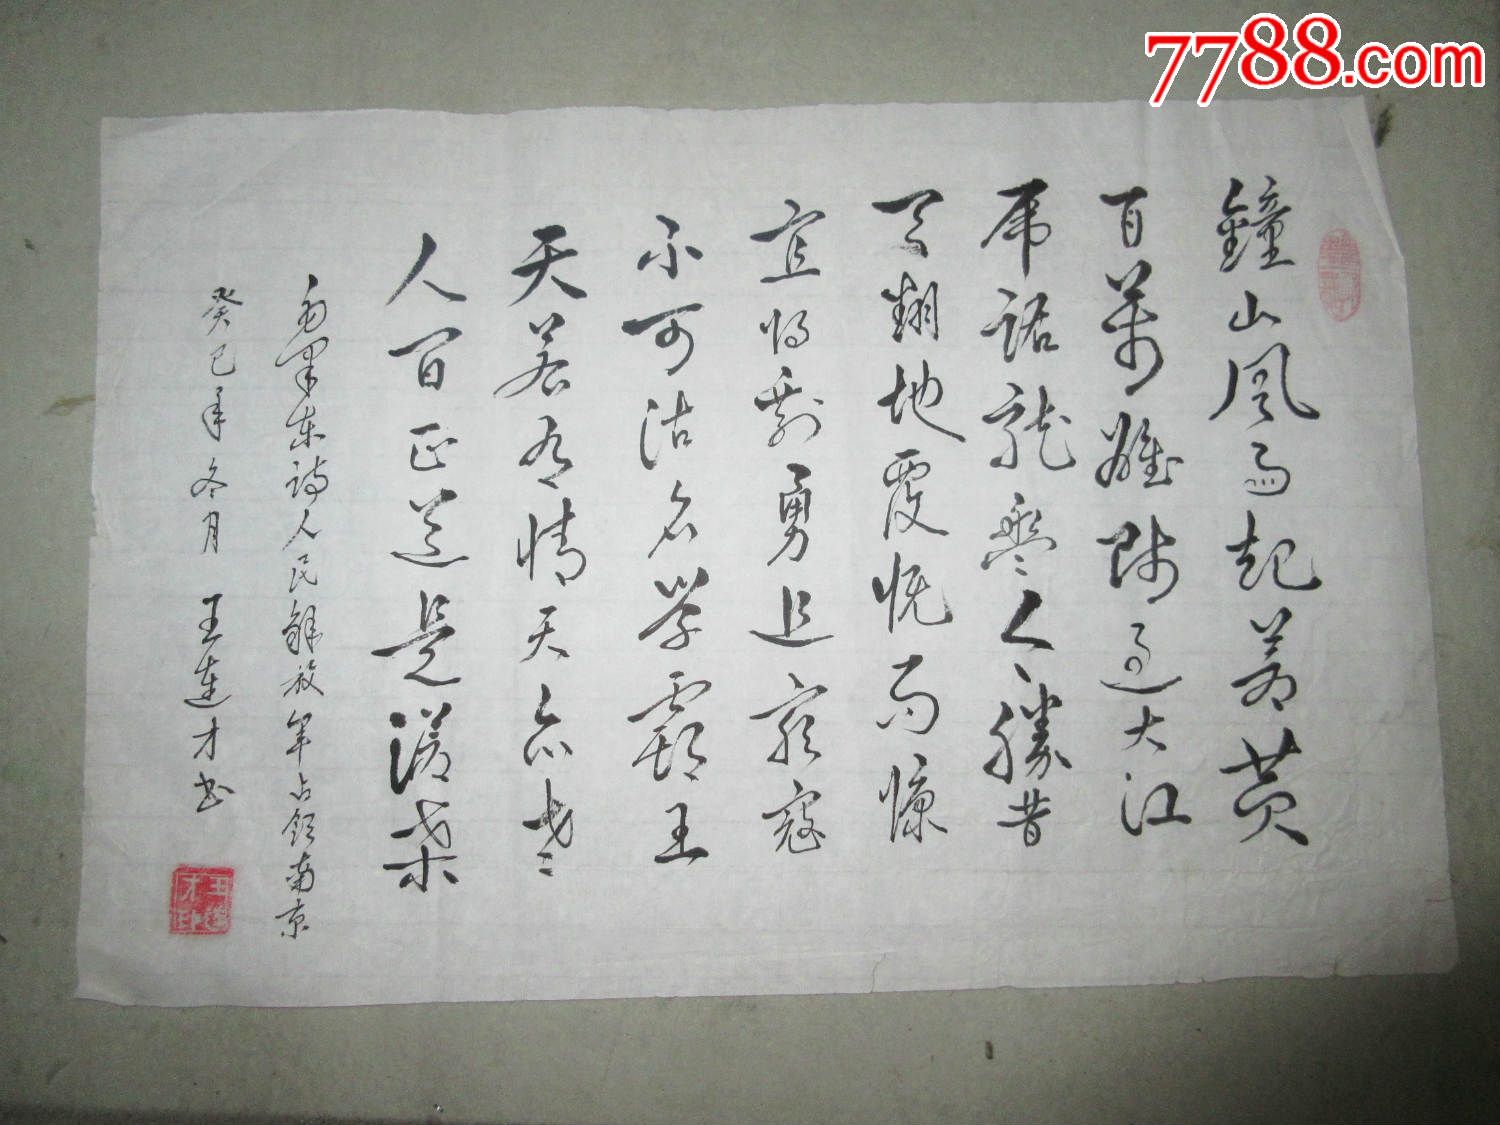 7788.com
鐘山風雨起蒼黄
百萬雄師過大江
虎踞龍盤今勝昔
天翻地覆慨而慷
宜将剩勇追窮寇
不可沽名学霸王
天若有情天亦老
人间正道是滄桒
毛澤东詩人民解放軍占領南京
癸巳年冬月 王連才书
王連才印